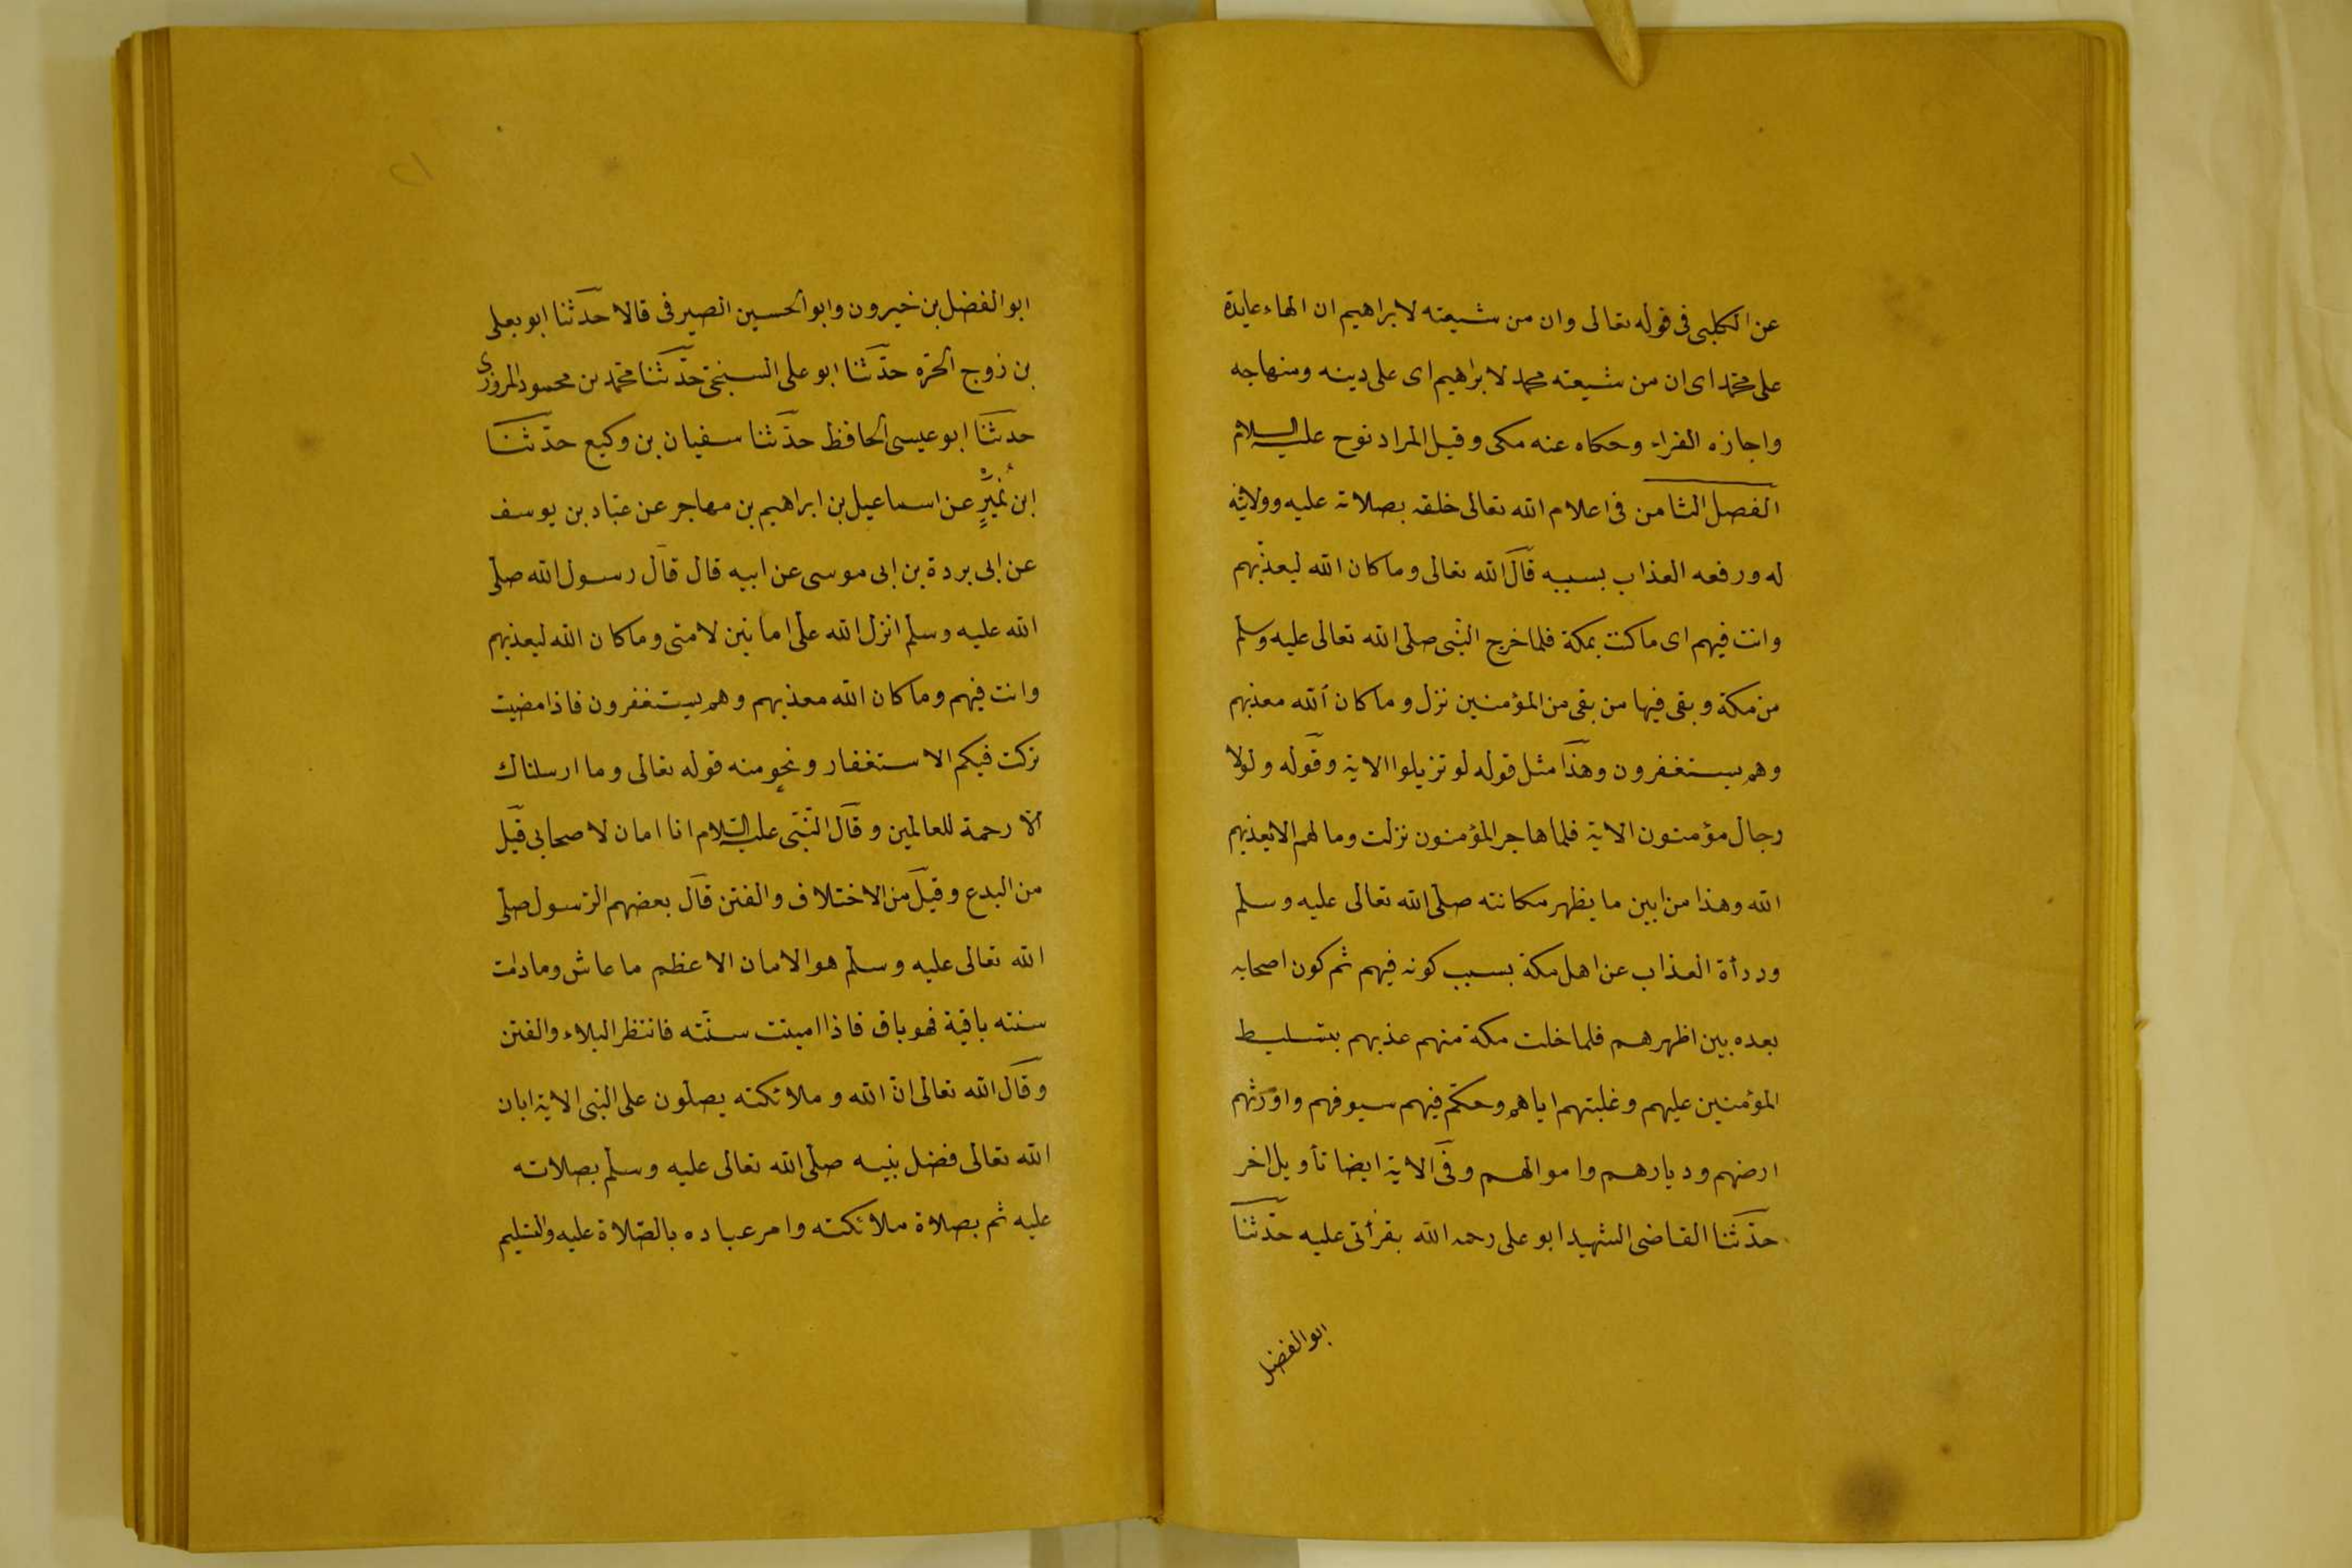 عن الكلبى فى قوله تعالى وان من شيعته لابراهيم ان الهاء عايدة
على محمّد اى ان من شيعته محمد لابراهيم اى على دينه ومنهاجه
واجازه الفراء وحكاه عنه مكى وقيل المراد نوح عليه السلام
الفصل الثامن فى اعلام الله تعالى خلقه بصلاته عليه وولايته
له ورفعه العذاب بسببه قال الله تعالى وما كان الله ليعذّبهم
وانت فيهم اى ما كنت بمكة فلما خرج النبّى صلّى الله تعالى عليه وسلّم
من مكة وبقى فيها من بقى من المؤمنين نزل وما كان الله معذبهم
وهم يستغفرون وهذا مثل قوله لو تزيلوا الاية وقوله ولولا
رجال مؤمنون الاية فلما هاجر المؤمنون نزلت وما لهم الا يعذبهم
الله وهذا من ابين ما يظهر مكانته صلّى الله تعالى عليه وسلّم
ودرأة العذاب عن اهل مكة بسبب كونه فيهم ثم كون اصحابه
بعده بين اظهرهم فلما خلت مكة منهم عذبهم بتسليط
المؤمنين عليهم وغلبتهم اياهم وحكّم فيهم سيوفهم واورثهم
ارضهم وديارهم واموالهم وفى الاية ايضا تأويل اخر
حدّثنا القاضى الشهيد ابو على رحمه الله بقرأتى عليه حدّثنا
ابو الفضل
٢١
ابو الفضل بن خيرون وابو الحسين الصيرفى قالا حدّثنا ابو يعلى
بن زوج الحرّه حدّثنا ابو على السنجى حدّثنا محمّد بن محمود المروزى
حدثنا ابو عيسى الحافظ حدّثنا سفيان بن وكيع حدّثنا
ابن نُمَيْرٍ عن اسماعيل بن ابراهيم بن مهاجر عن عبّاد بن يوسف
عن ابى بردة بن ابى موسى عن ابيه قال قال رسول الله صلّى
الله عليه وسلّم انزل الله علىّ امانين لامتى وما كان الله ليعذبهم
وانت فيهم وما كان الله معذبهم وهم يستغفرون فاذا مضيت
تركت فيكم الاستغفار ونحو منه قوله تعالى وما ارسلناك
الّا رحمة للعالمين وقال النّبى عليه السّلام انا امان لاصحابى قيل
من البدع وقيل من الاختلاف والفتن قال بعضهم الرّسول صلّى
الله تعالى عليه وسلّم هو الامان الاعظم ما عاش ومادامت
سنته باقية فهو باق فاذا اميتت سنّته فانتظر البلاء والفتن
وقال الله تعالى انّ الله وملائكته يصلّون على النبى الاية ابان
الله تعالى فضل نبيه صلّى الله تعالى عليه وسلّم بصلاته
عليه ثم بصلاة ملائكته وامر عباده بالصّلاة عليه والتسليم